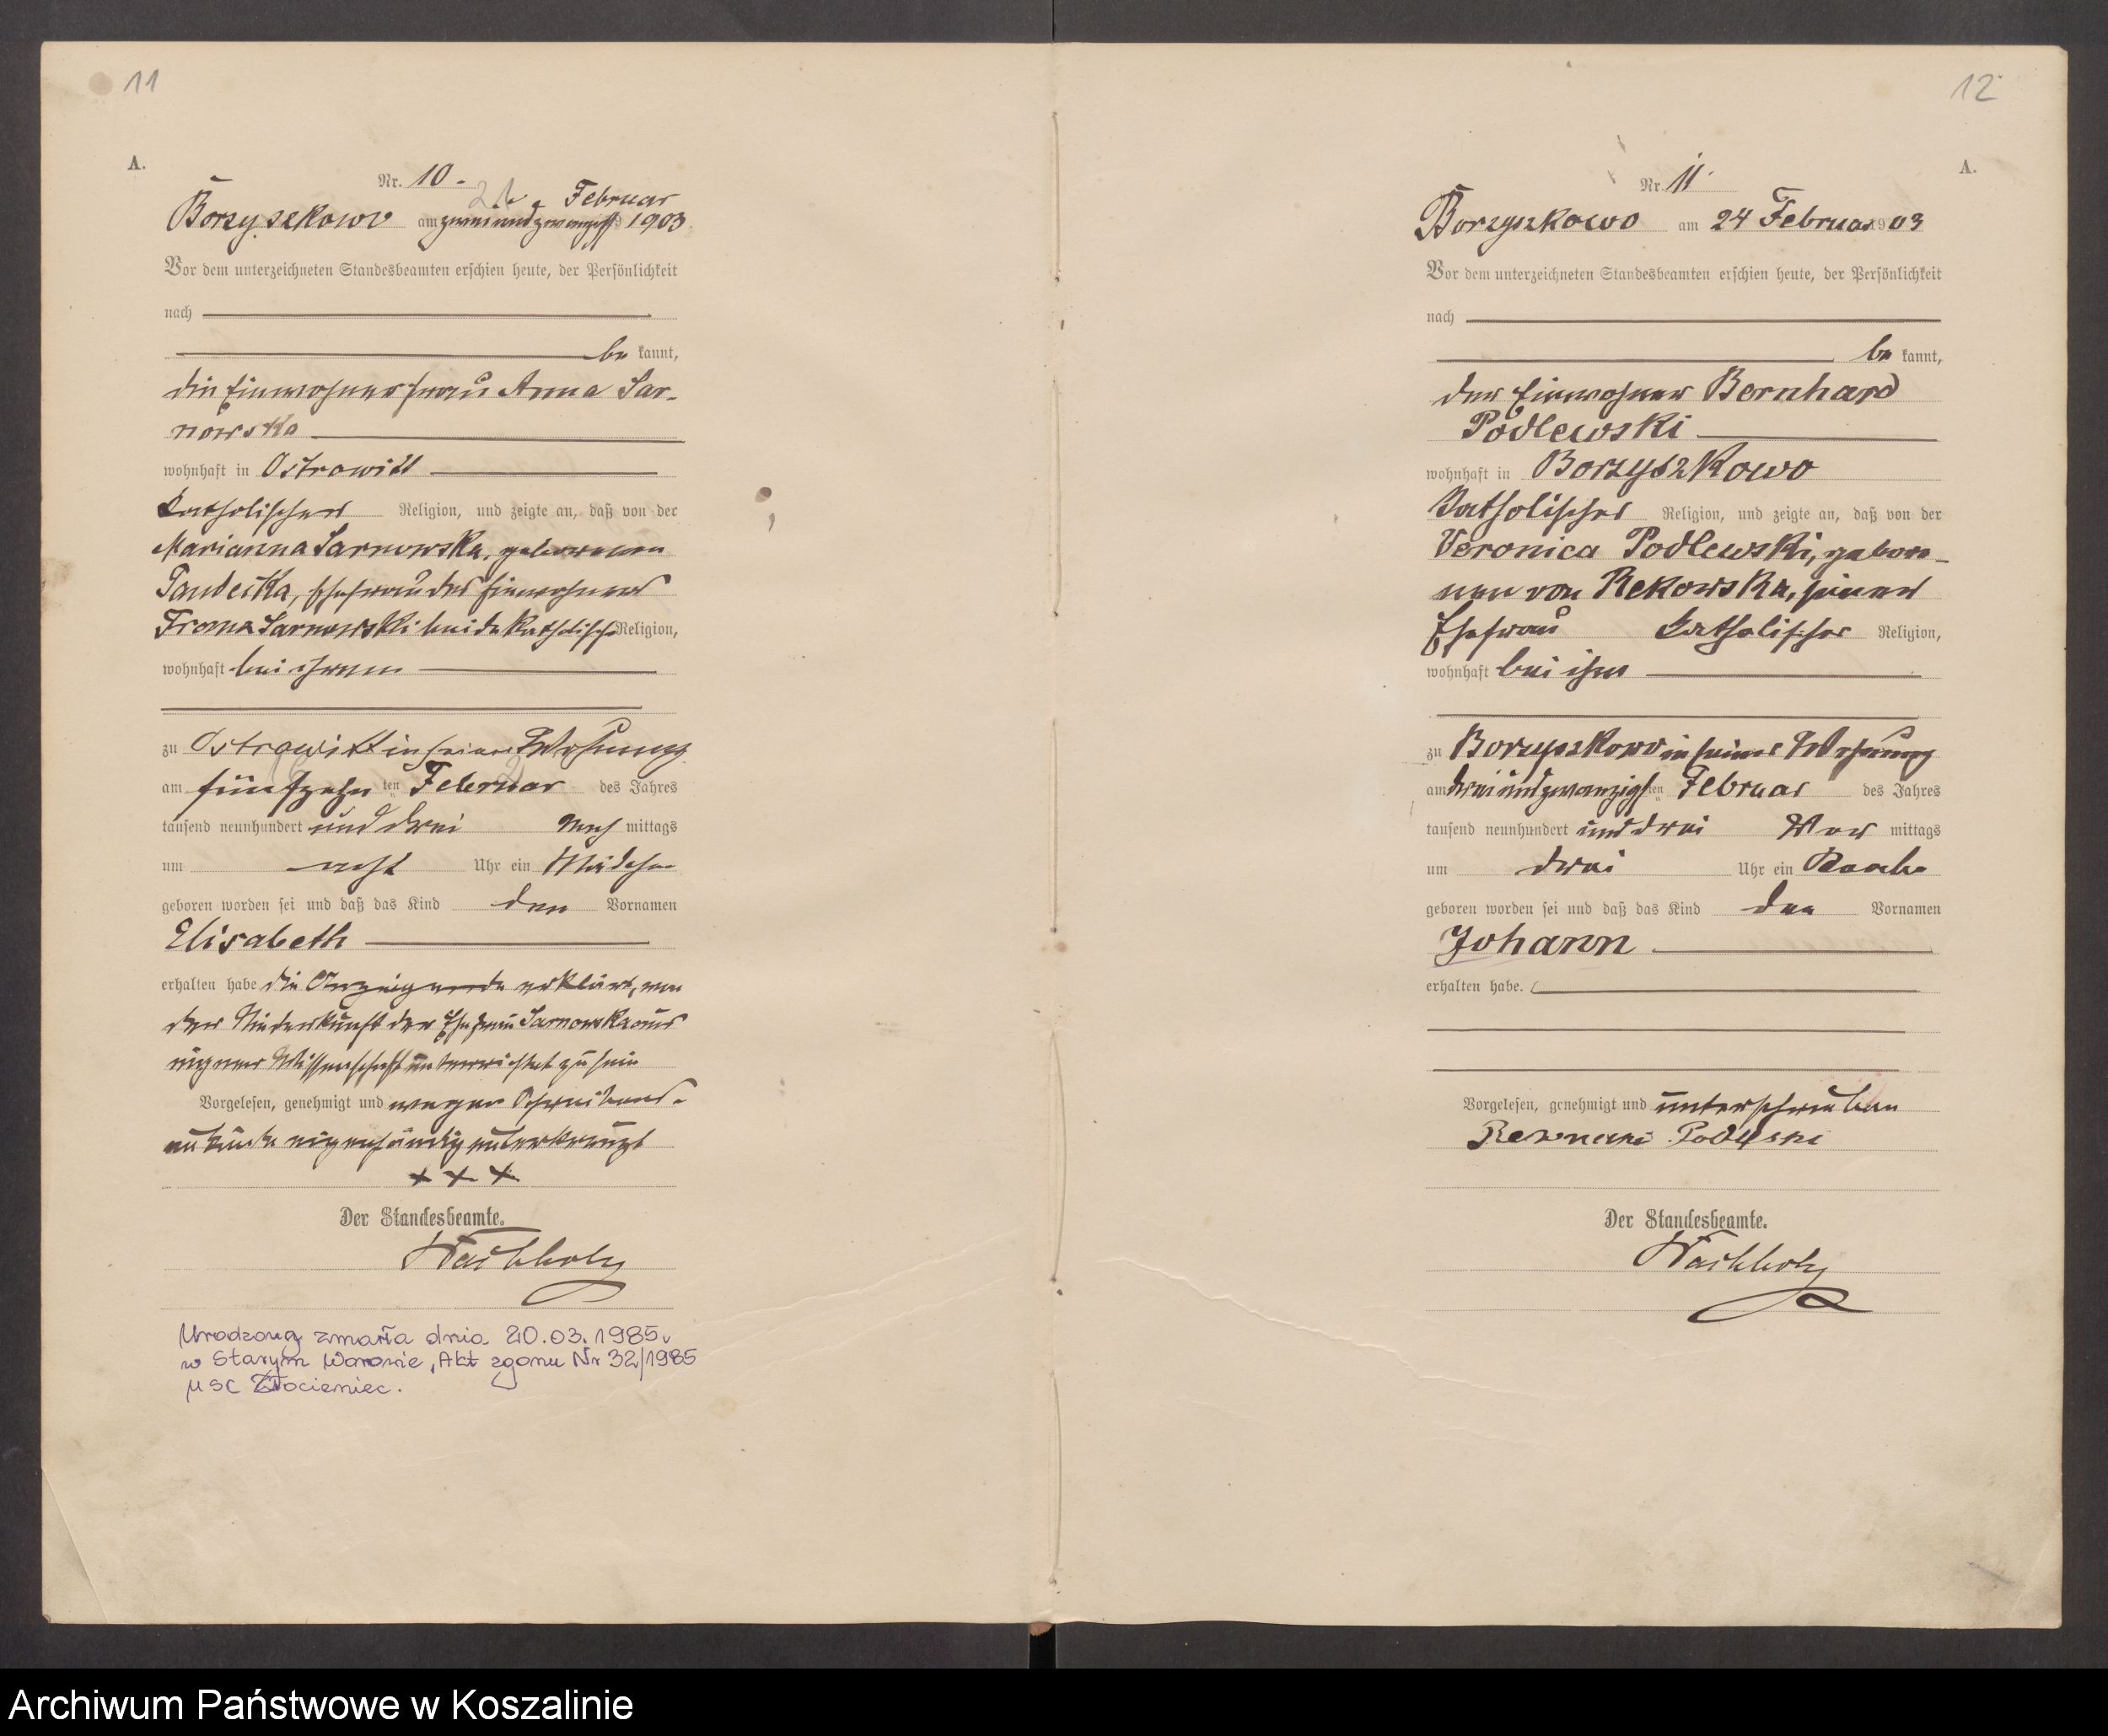 11
A.
Nr. 10.
21. Februar
Borzyszkowo am zweiundzwanzigst 1903
Vor dem unterzeichneten Standesbeamten erschien heute, der Persönlichkeit
nach
be kannt,
die Einwohnerfrau Anna Sar-
nowska
wohnhaft in Ostrowitt
katholischer Religion, und zeigte an, daß von der
Marianna Sarnowska, geborenen
Ehefrau des Einwohners
Franz Sarnowski beide katholisch Religion,
wohnhaft bei ihrem
zu Ostrowitt in seiner Wohnung
am fünfzehn ten Februar des Jahres
tausend neunhundert und drei Nach mittags
um acht Uhr ein Mädchen
geboren worden sei und daß das Kind den Vornamen
Elisabeth
erhalten habe die Anzeigende erklärt, von
der Niederkunft der Ehefrau Sarnowska aus
eigener Wissenschaft unterrichtet zu sein
Vorgelesen, genehmigt und wegen Schreibens-
unkunde eigenhändig unterkreuzt
+ + +
Der Standesbeamte.
Urodzona zmarła dnia 20.03.1985
w Starym Worowie, Akt zgonu Nr 32/1985
USC Złocieniec.
12
A.
Nr. 11.
Borzyszkowo am 24 Februar 1903
Vor dem unterzeichneten Standesbeamten erschien heute, der Persönlichkeit
nach
be kannt,
der Einwohner Bernhard
Podlewski
wohnhaft in Borzyszkowo
katholischer Religion, und zeigte an, daß von der
Veronica Podlewski, gebore-
nen von Rekowska, seiner
Ehefrau katholischer Religion,
wohnhaft bei ihm
zu Borzyszkowo in seiner Wohnung
am dreiundzwanzigsten Februar des Jahres
tausend neunhundert und drei Vor mittags
um drei Uhr ein Knabe
geboren worden sei und daß das Kind den Vornamen
Johann
erhalten habe.
Vorgelesen, genehmigt und unterschrieben
Der Standesbeamte.
Archiwum Państwowe w Koszalinie